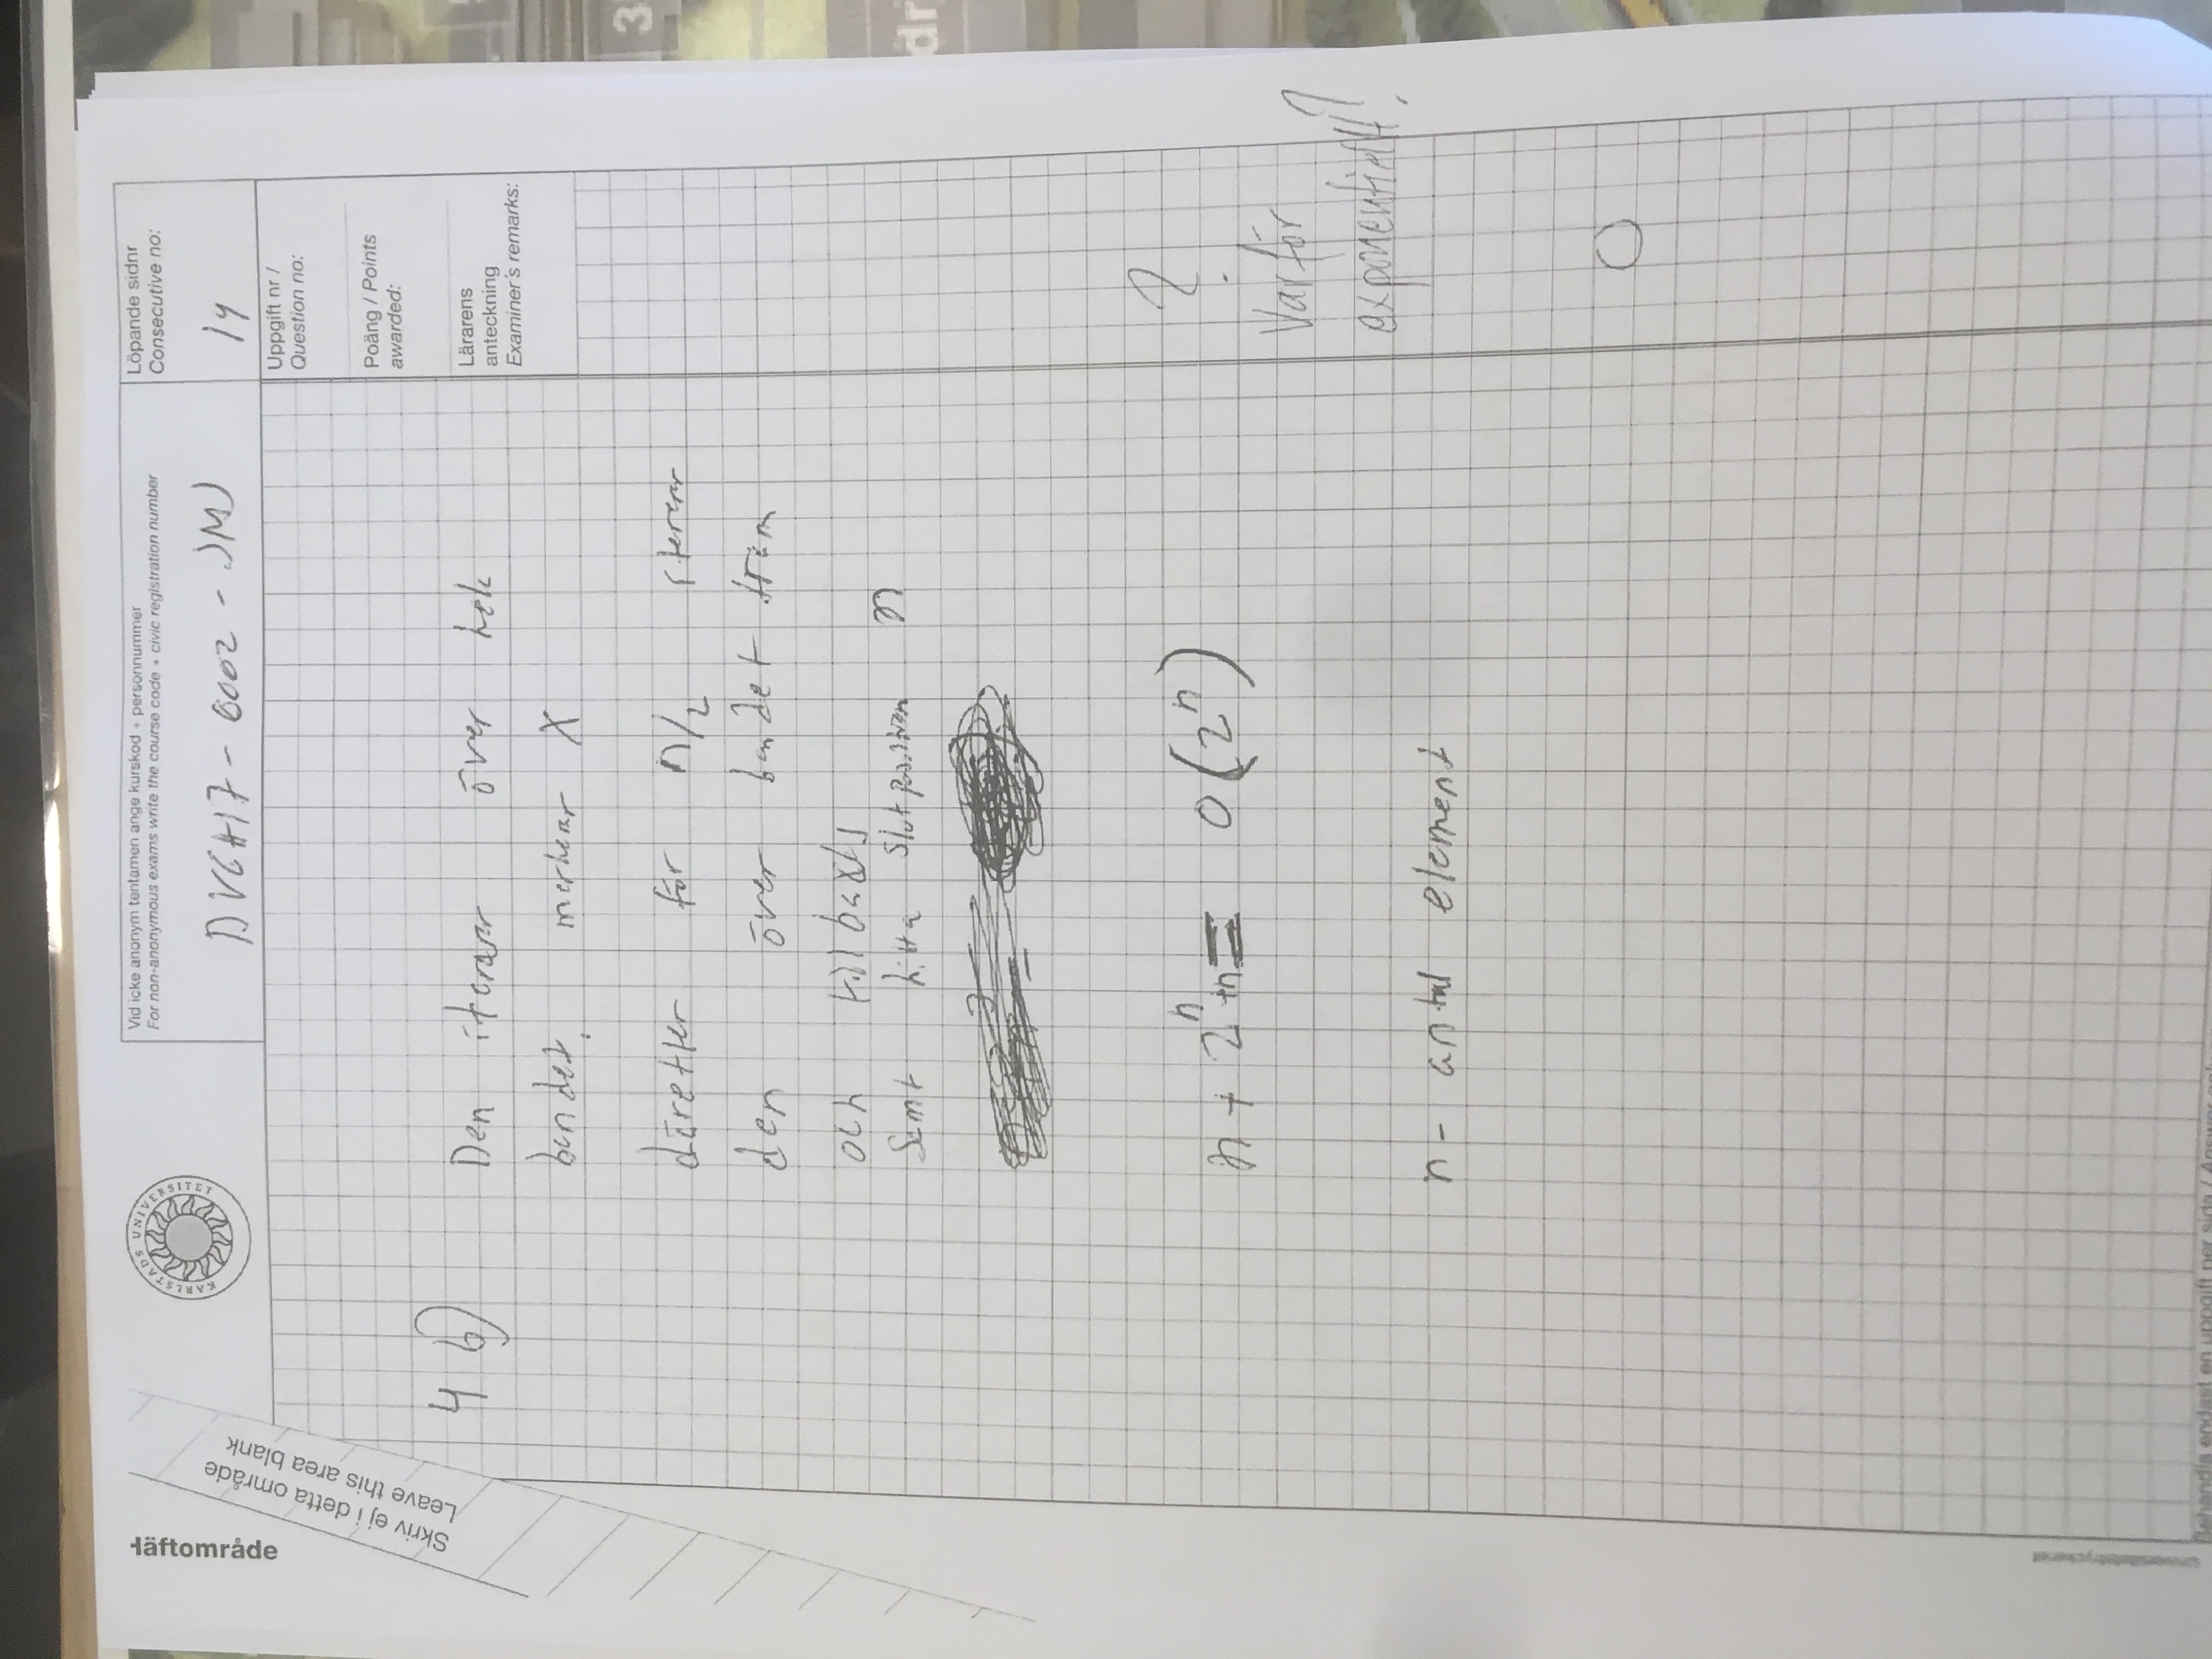 Häftområde
Skriv ej i detta område
Leave this area blank
KARLSTADS UNIVERSITET
Vid icke anonym tentamen ange kurskod + personnummer
For non-anonymous exams write the course code + civic registration number
DVGA17 - 0002 - JMJ
Löpande sidnr
Consecutive no:
14
Uppgift nr /
Question no:
Poäng / Points
awarded:
Lärarens
anteckning
Examiner's remarks:
4 b)
Den itererar över hela
bandet, markerar X
därefter för n/2 itererar
den över bandet fram
och tillbaks
Samt hitta slutposition n
n + 2^n + n = O(2^n)
?
Varför
exponentiellt?
n - antal element
0
Universitetstryckeriet
Behandla endast en uppgift per sida / Answer only
3
dr